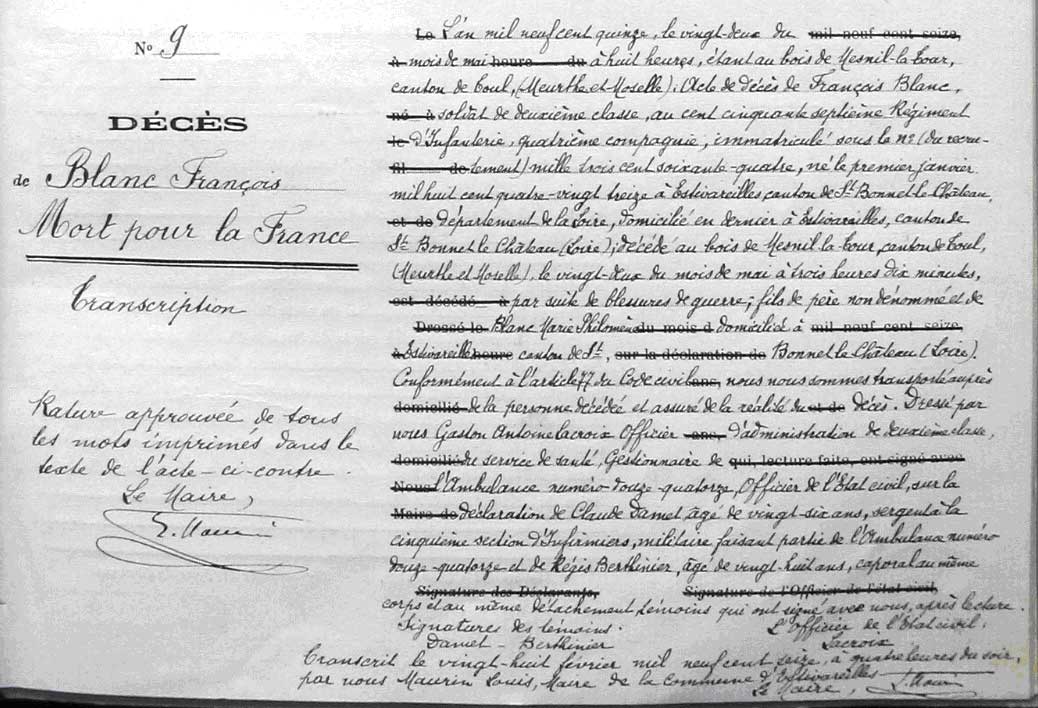 N° 9
DÉCÈS
de Blanc François
Mort pour la France
Transcription
Rature approuvée de tous
les mots imprimés dans le
texte de l'acte-ci-contre.
Le Maire,
L. Maurin
Le L'an mil neuf cent quinze, le vingt-deux du mil neuf cent seize,
à mois de mai heure du à huit heures, étant au bois de Mesnil-la-Tour,
canton de Toul, (Meurthe et Moselle). Acte de décès de François Blanc,
né à soldat de deuxième classe, au cent cinquante septième Régiment
le d'Infanterie, quatrième compagnie, immatriculé sous le n° (du recru-
fil de tement) mille trois cent soixante-quatre, né le premier janvier
mil huit cent quatre-vingt treize à Estivareilles canton de St Bonnet le Château,
et de département de la Loire, domicilié en dernier à Estivareilles, canton de
St Bonnet le Château (Loire); décédé au bois de Mesnil la Tour, canton de Toul,
(Meurthe et Moselle), le vingt-deux du mois de mai à trois heures dix minutes,
est décédé à par suite de blessures de guerre; fils de père non dénommé et de
Dressé le Blanc Marie Philomène du mois d domiciliée à mil neuf cent seize,
à Estivareille heure canton de St, sur la déclaration de Bonnet le Château (Loire).
Conformément à l'article 77 du Code civil ans, nous nous sommes transporté auprès
domicilié de la personne décédée et assuré de la réalité du et de décès. Dressé par
nous Gaston Antoine Lacroix Officier ans, d'administration de deuxième classe,
domicilié du service de santé, Gestionnaire de qui, lecture faite, ont signé avec
Nous l'Ambulance numéro douze-quatorze, Officier de l'Etat civil, sur la
Maire de déclaration de Claude Damet, âgé de vingt-six ans, sergent à la
cinquième section d'Infirmiers, militaire faisant partie de l'Ambulance numéro
douze-quatorze et de Régis Berthinier, âgé de vingt-huit ans, caporal au même
Signature des Déclarants, Signature de l'Officier de l'état civil,
corps et au même détachement témoins qui ont signé avec nous, après lecture.
Signatures des témoins. L'Officier de l'Etat civil.
Damet - Berthinier Lacroix
Transcrit le vingt-huit février mil neuf cent seize, à quatre heures du soir,
par nous Maurin Louis, Maire de la Commune d'Estivareilles
Le Maire, L. Maurin